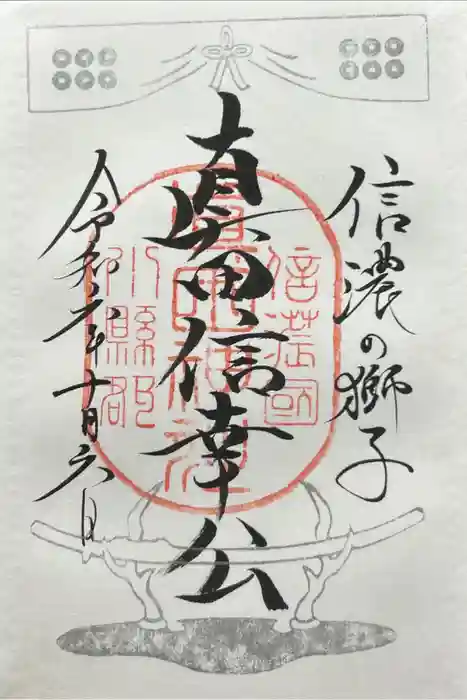 信濃の獅子
真田信幸公
令和元年十月六日
信濃國
眞田神社
小縣郡